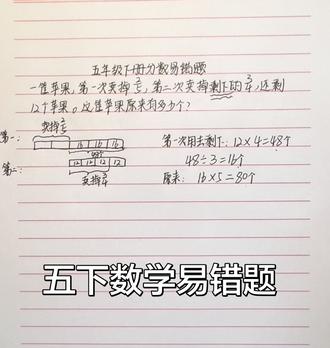 五年级下册分数易错题
一筐苹果,第一次卖掉2/5,第二次卖掉剩下的3/4,还剩
12个苹果。这筐苹果原来有多少个?
卖掉2/5
第一: 16 16 16
48个
第二: 12 12 12 12
卖掉3/4
第一次用去剩下:12×4=48个
48÷3=16个
原来:16×5=80个
五下数学易错题